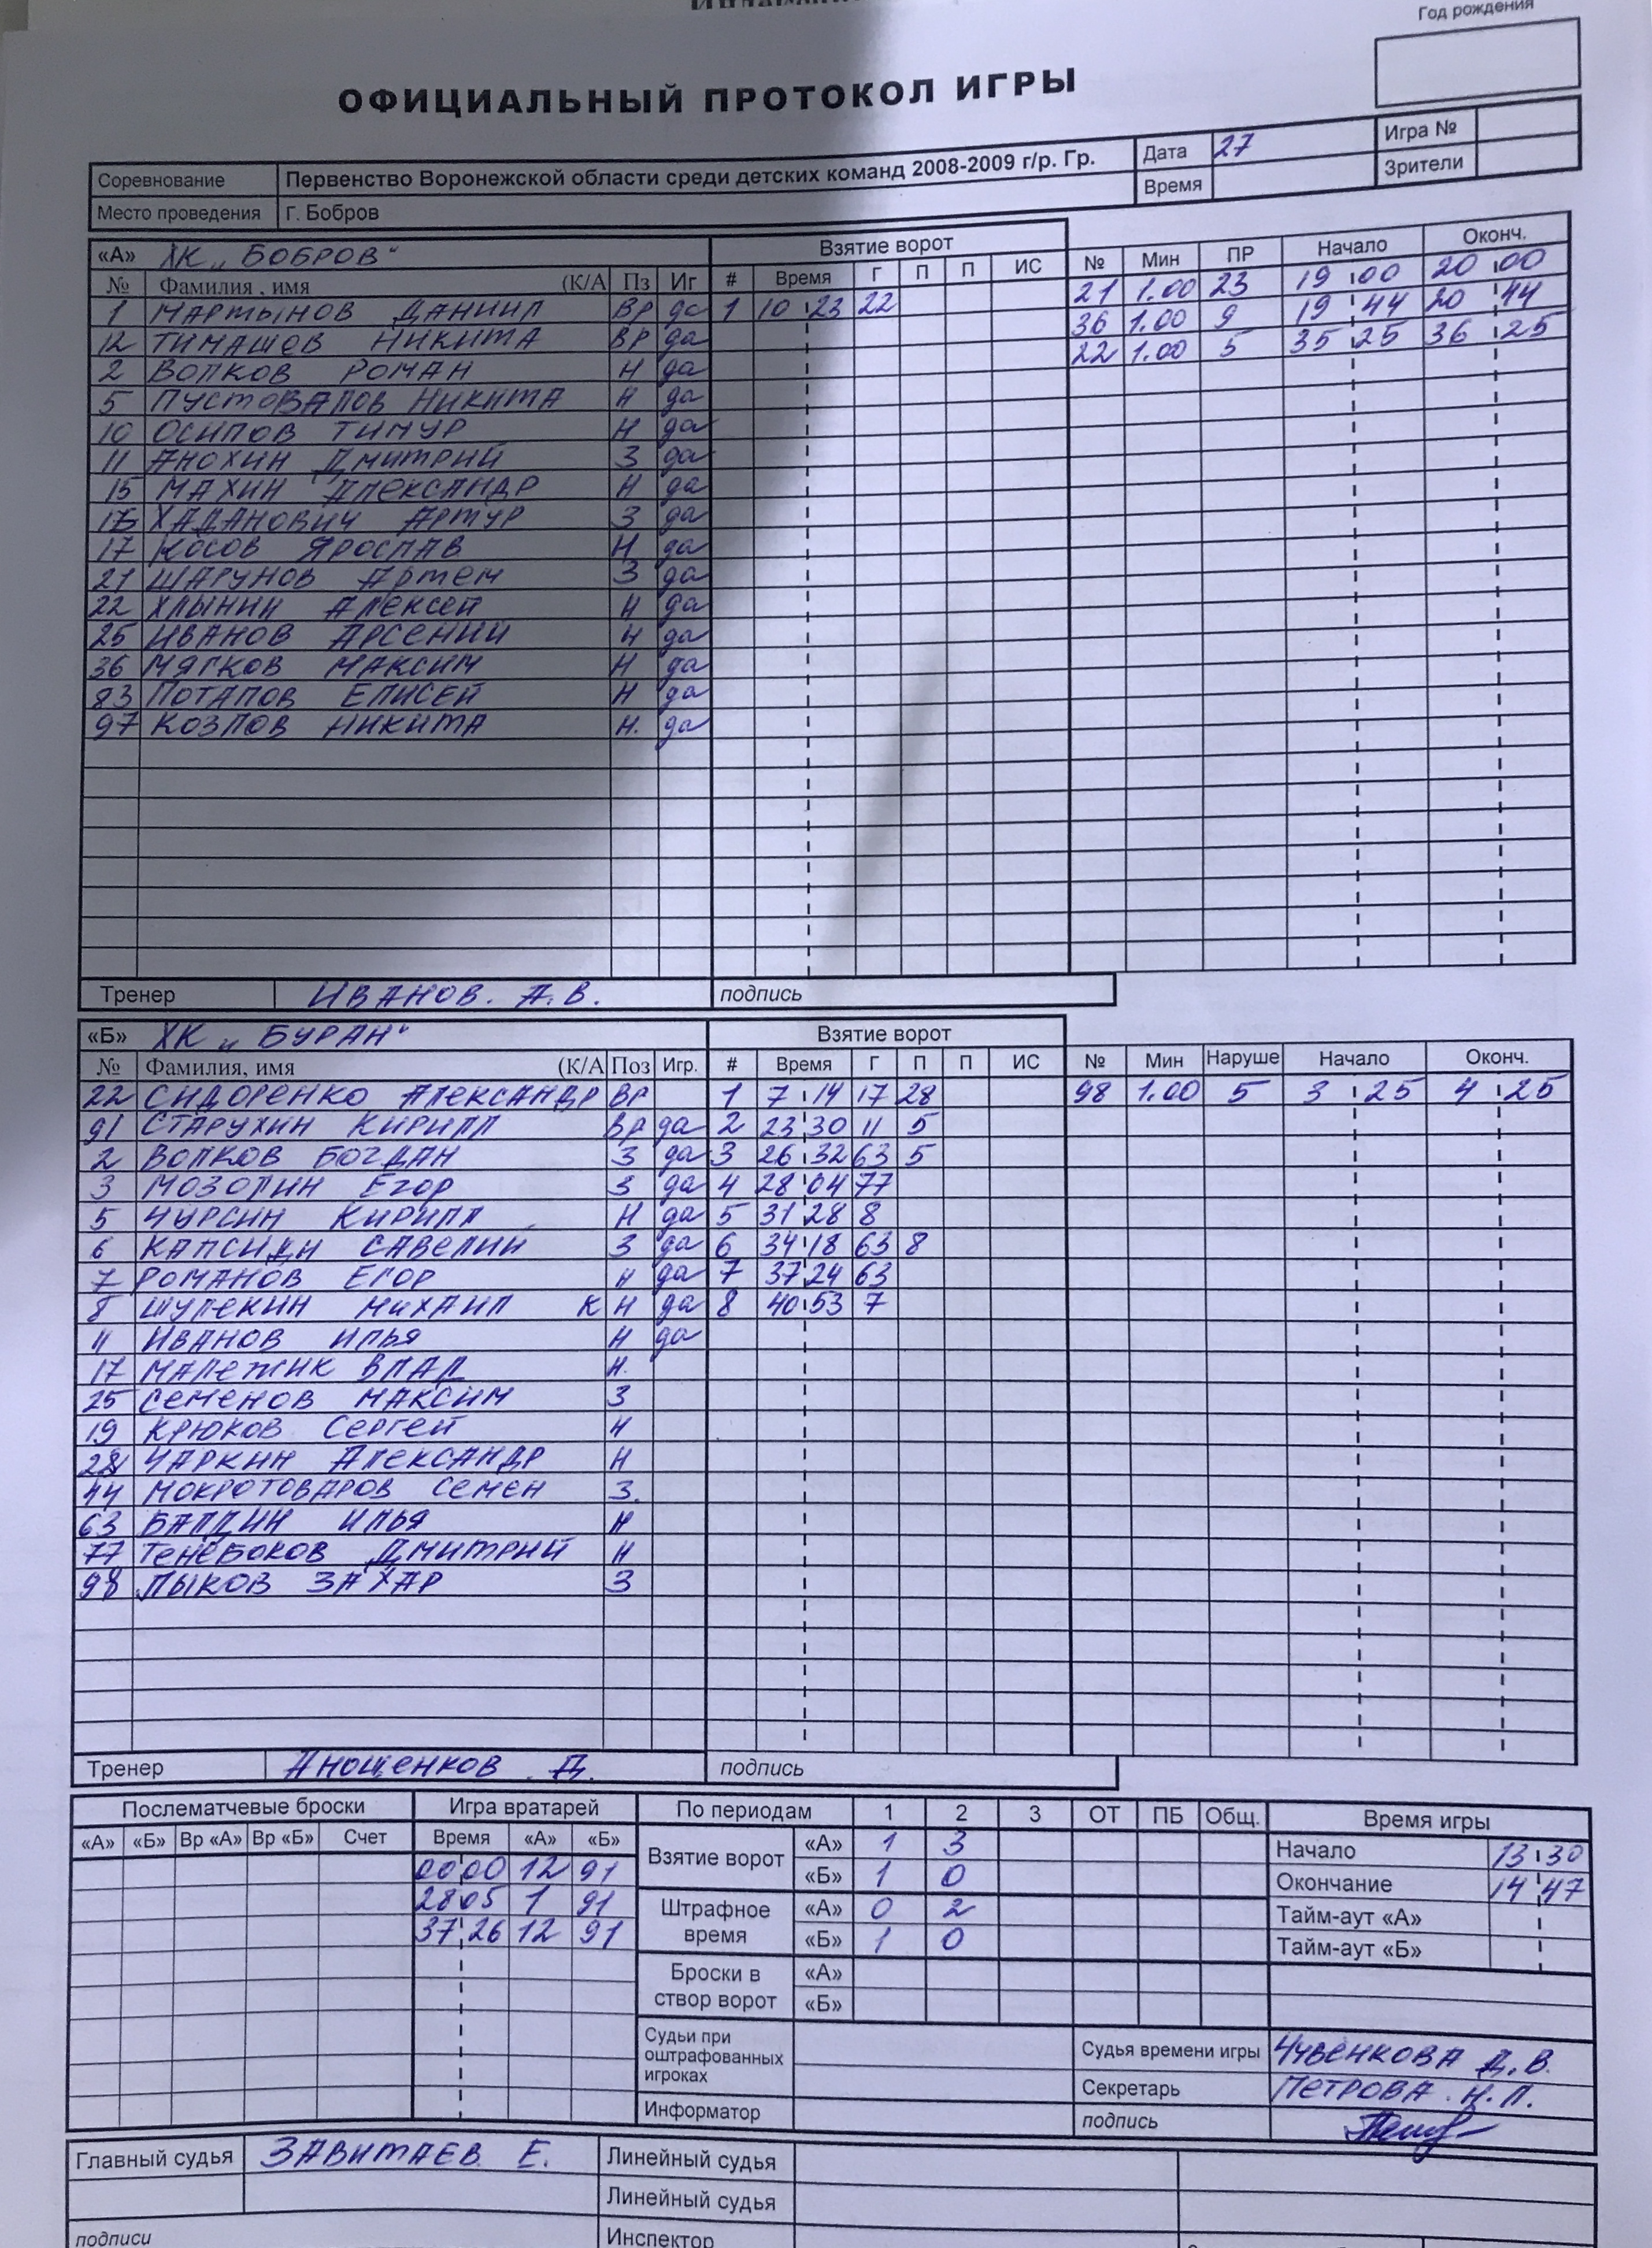 Год рождения
ОФИЦИАЛЬНЫЙ ПРОТОКОЛ ИГРЫ
Соревнование Первенство Воронежской области среди детских команд 2008-2009 г/р. Гр. Дата 27 Игра №
Место проведения Г. Бобров Время Зрители
«А» ХК „БОБРОВ" Взятие ворот
№ Фамилия , имя (К/А Пз Иг # Время Г П П ИС № Мин ПР Начало Оконч.
1 МАРТЫНОВ ДАНИИЛ ВР да 1 10 23 22 21 1.00 23 19 00 20 00
12 ТИМАШОВ НИКИТА ВР да 36 1.00 9 19 44 20 44
2 ВОЛКОВ РОМАН Н да 22 1.00 5 35 25 36 25
5 ПУСТОВАЛОВ НИКИТА Н да
10 ОСИПОВ ТИМУР Н да
11 АНОХИН ДМИТРИЙ З да
15 МАХИН АЛЕКСАНДР Н да
16 ХАДАНОВИЧ АРТУР З да
17 КОСОВ ЯРОСЛАВ Н да
21 ШАРУНОВ АРТЕМ З да
22 ХЛЫНИН АЛЕКСЕЙ Н да
25 ИВАНОВ АРСЕНИЙ Н да
36 МЯГКОВ МАКСИМ Н да
83 ПОТАПОВ ЕЛИСЕЙ Н да
97 КОЗЛОВ НИКИТА Н. да
Тренер ИВАНОВ. А.В. подпись
«Б» ХК „БУРАН" Взятие ворот
№ Фамилия, имя (К/А Поз Игр. # Время Г П П ИС № Мин Наруше Начало Оконч.
22 СИДОРЕНКО АЛЕКСАНДР ВР 1 7 14 17 28 98 1.00 5 3 25 4 25
91 СТАРУХИН КИРИЛЛ ВР да 2 23 30 11 5
2 ВОЛКОВ БОГДАН З да 3 26 32 63 5
3 МОЗОЛИН ЕГОР З да 4 28 04 77
5 ЧУРСИН КИРИЛЛ Н да 5 31 28 8
6 КАПСИДИ САВЕЛИЙ З да 6 34 18 63 8
7 РОМАНОВ ЕГОР Н да 7 37 24 63
8 ШУЛЕКИН МИХАИЛ К Н да 8 40 53 7
11 ИВАНОВ ИЛЬЯ Н да
17 МАЛЕЖИК ВЛАД Н.
25 СЕМЕНОВ МАКСИМ З
19 КРЮКОВ СЕРГЕЙ Н
28 ЧАРКИН АЛЕКСАНДР Н
44 МОКРОТОВАРОВ СЕМЕН З.
63 БАЛДИН ИЛЬЯ Н
77 ТЕНЕБОКОВ ДМИТРИЙ Н
98 ЛЫКОВ ЗАХАР З
Тренер АНОЩЕНКОВ Д. подпись
Послематчевые броски Игра вратарей По периодам 1 2 3 ОТ ПБ Общ. Время игры
«А» «Б» Вр «А» Вр «Б» Счет Время «А» «Б» Взятие ворот «А» 1 3 Начало 13 30
00 00 12 91 «Б» 1 0 Окончание 14 47
28 05 1 91 Штрафное время «А» 0 2 Тайм-аут «А»
37 26 12 91 «Б» 1 0 Тайм-аут «Б»
Броски в створ ворот «А»
«Б»
Судьи при оштрафованных игроках Судья времени игры ЧУВЕНКОВА Д.В.
Секретарь ПЕТРОВА Н.П.
Информатор подпись
Главный судья ЗАВИТАЕВ Е. Линейный судья
Линейный судья
подписи Инспектор